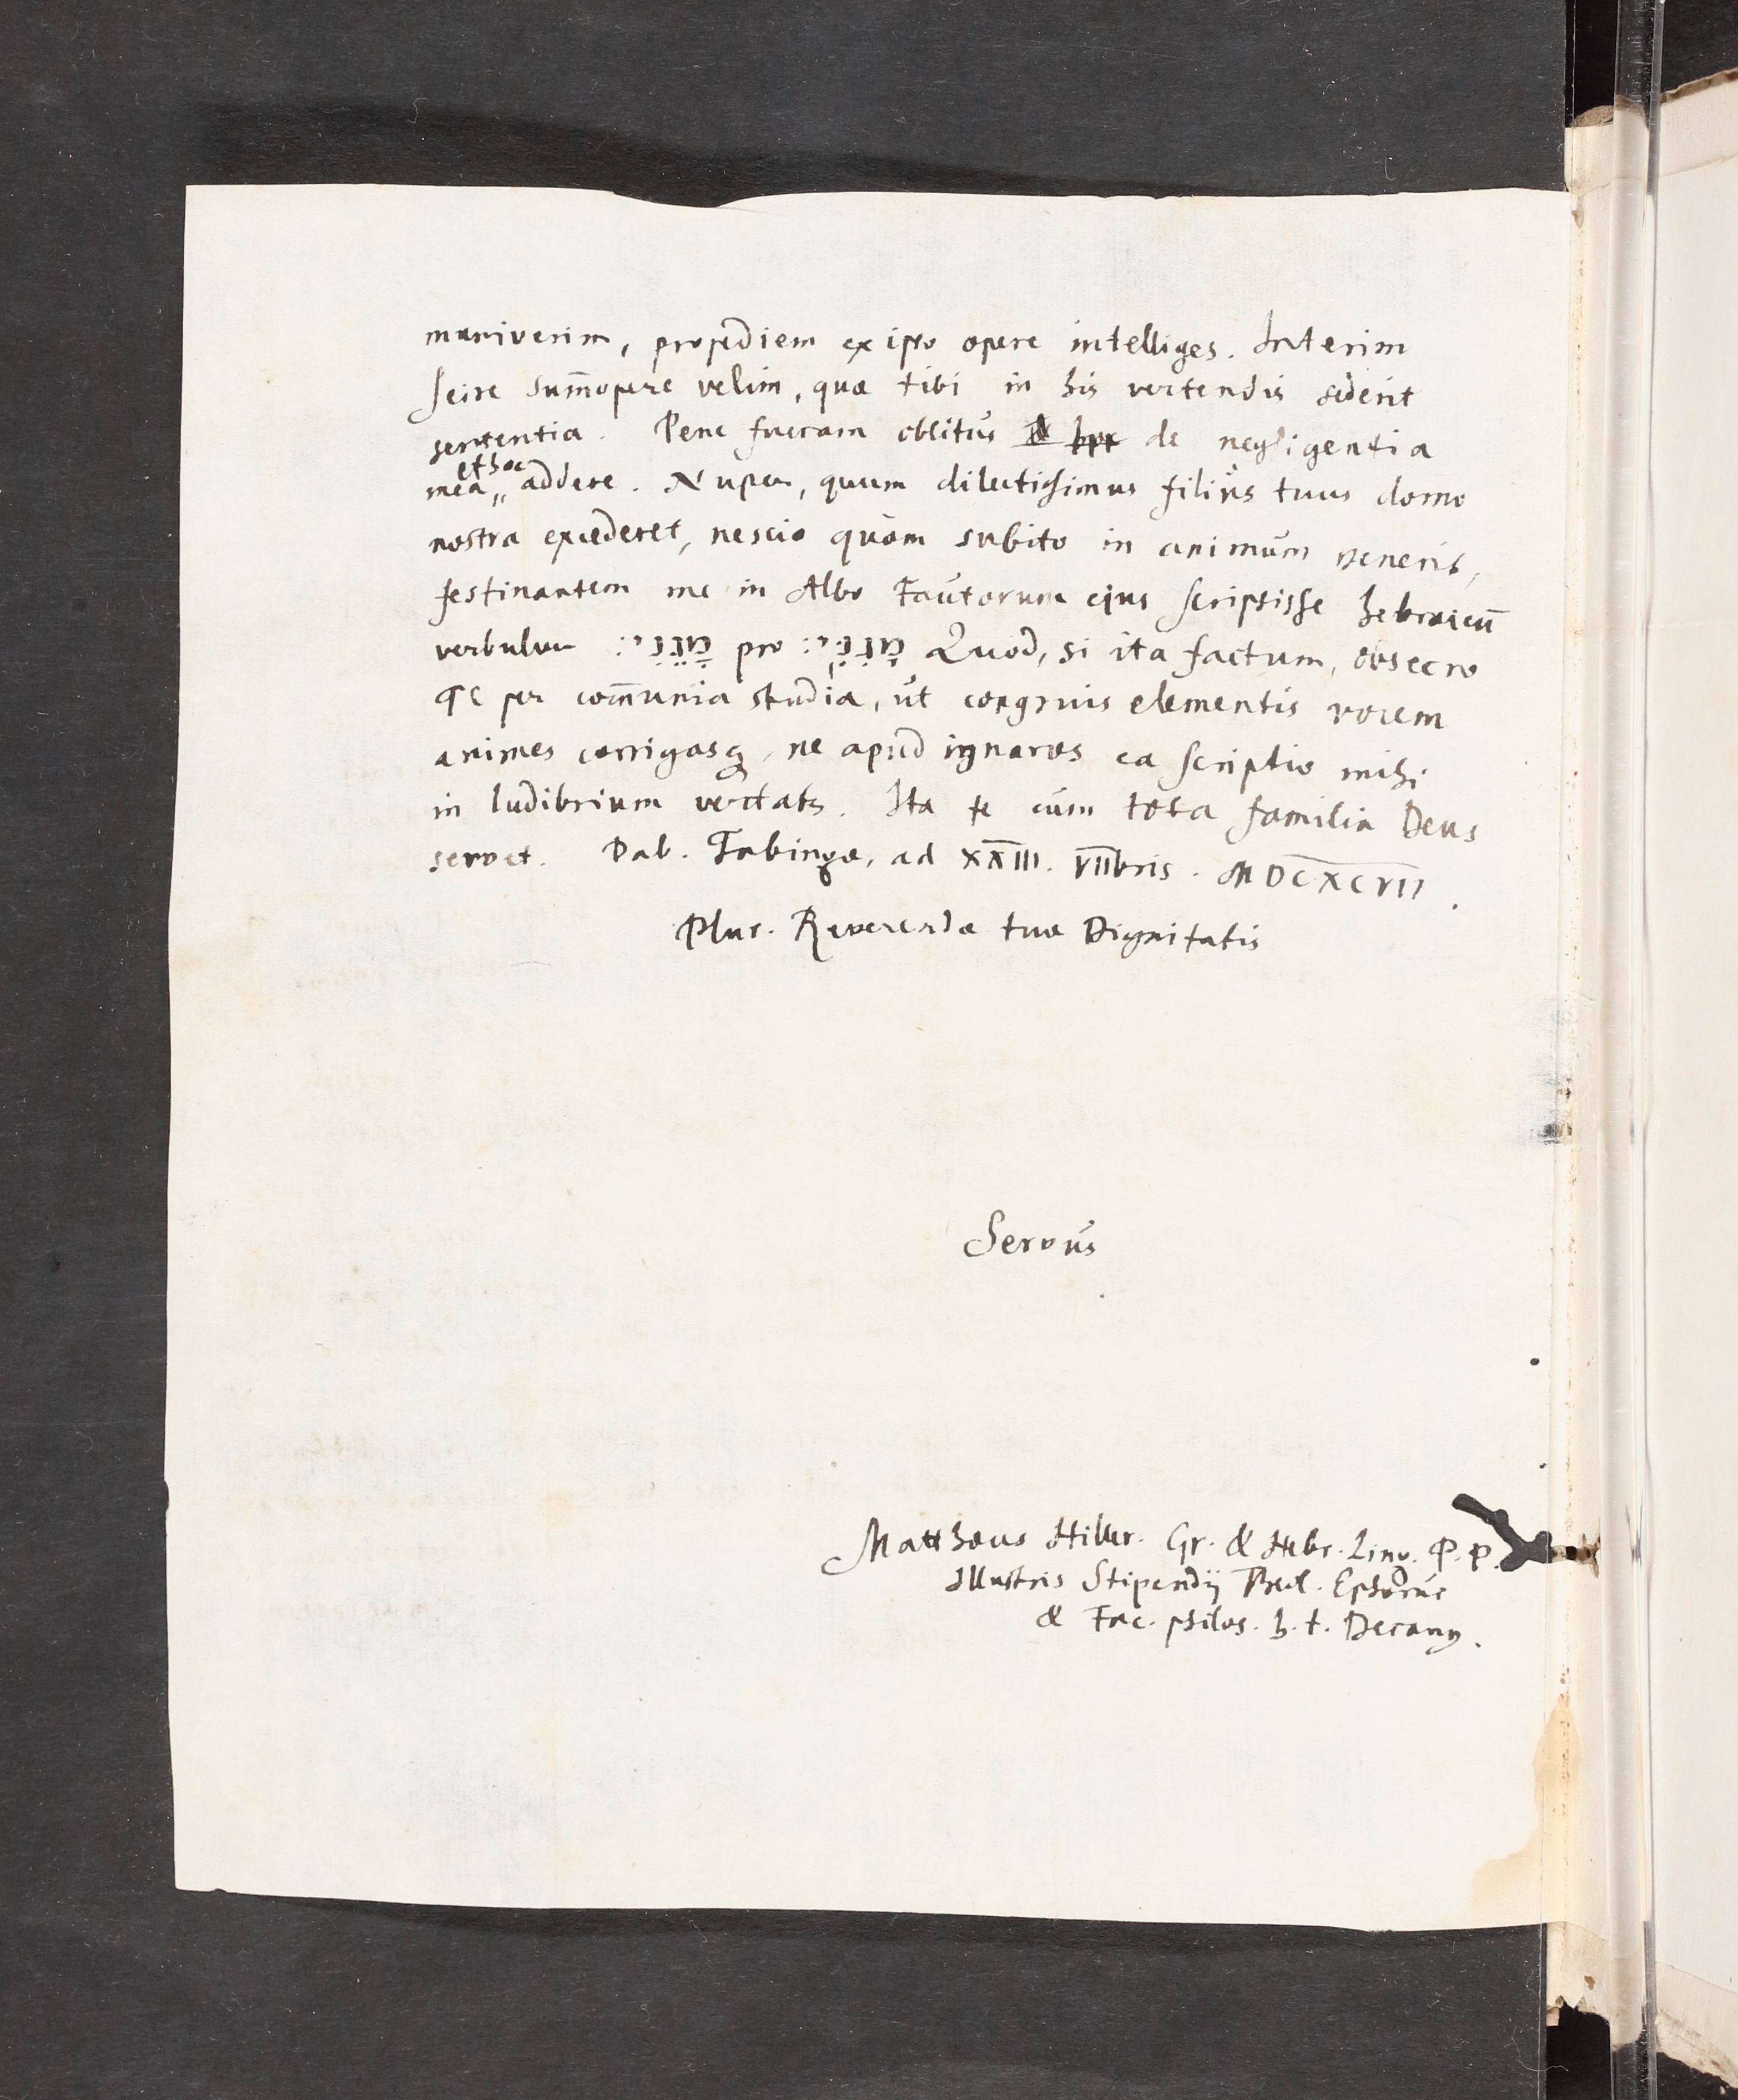 muniverim, propediem ex ipso opere intelliges. Interim
scire sum̄opere velim, quæ tibi in his vertendis sederit
sententia. Pene fueram oblitus de negligentia
et hoc
mea addere. Nuper, quum dilectissimus filius tuus domo
nostra excederet, nescio quàm subito in animum venerit,
festinantem me in Albo Fautorum ejus scripsisse hebraicū
verbulum pro Quod, si ita factum, obsecro
Te per com̄unia studia, ut congruis elementis vocem
animes corrigasq, ne apud ignaros ea scriptio mihi
in ludibrium vertats. Ita te cum tota familia Deus
servet. Dab. Tubingæ, ad XXIII. VIIbris. MDCXCVII.
Plur. Reverendæ tuæ Dignitatis
Servus
Matthæus Hiller. Gr. & Hebr. Ling. P. P.
Illustris Stipendij Ephorus
& Fac. philos. h. t. Decanus.